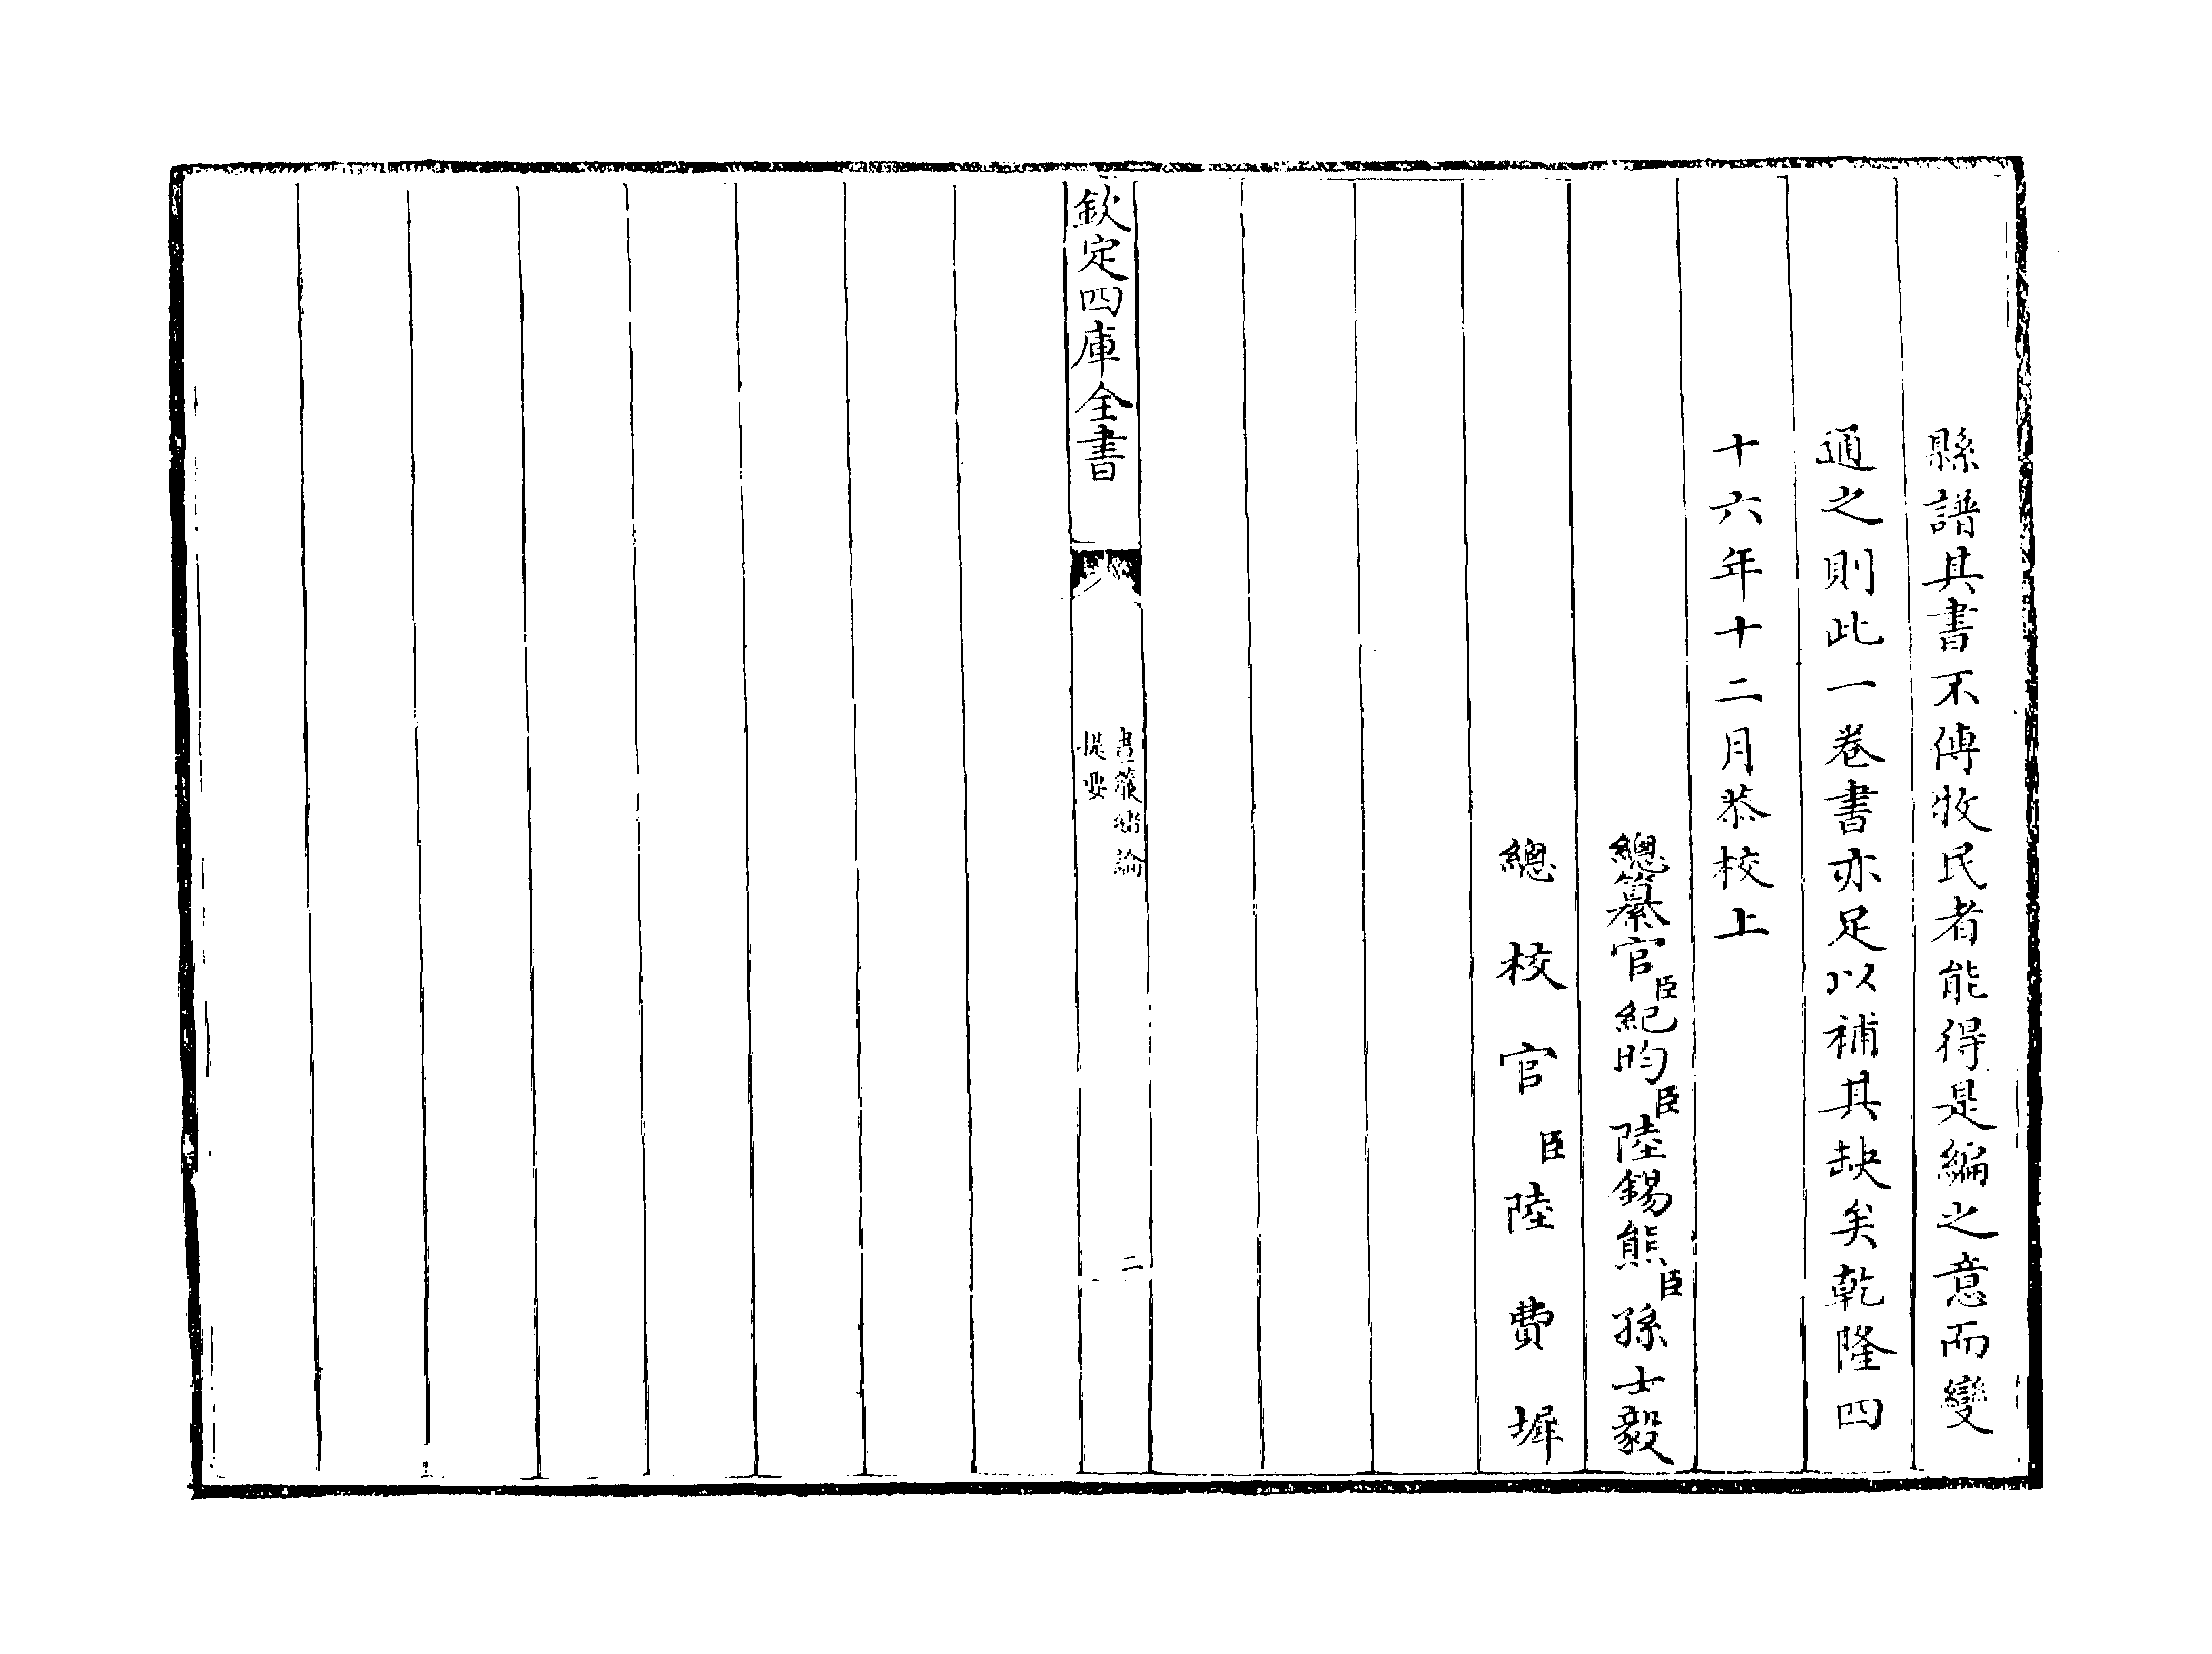 縣譜其書不傳牧民者能得是編之意而變
通之則此一卷書亦足以補其缺矣乾隆四
十六年十二月恭校上
總纂官臣紀昀臣陸錫熊臣孫士毅
總校官臣陸費墀
欽定四庫全書
晝簾緒論
提要
二